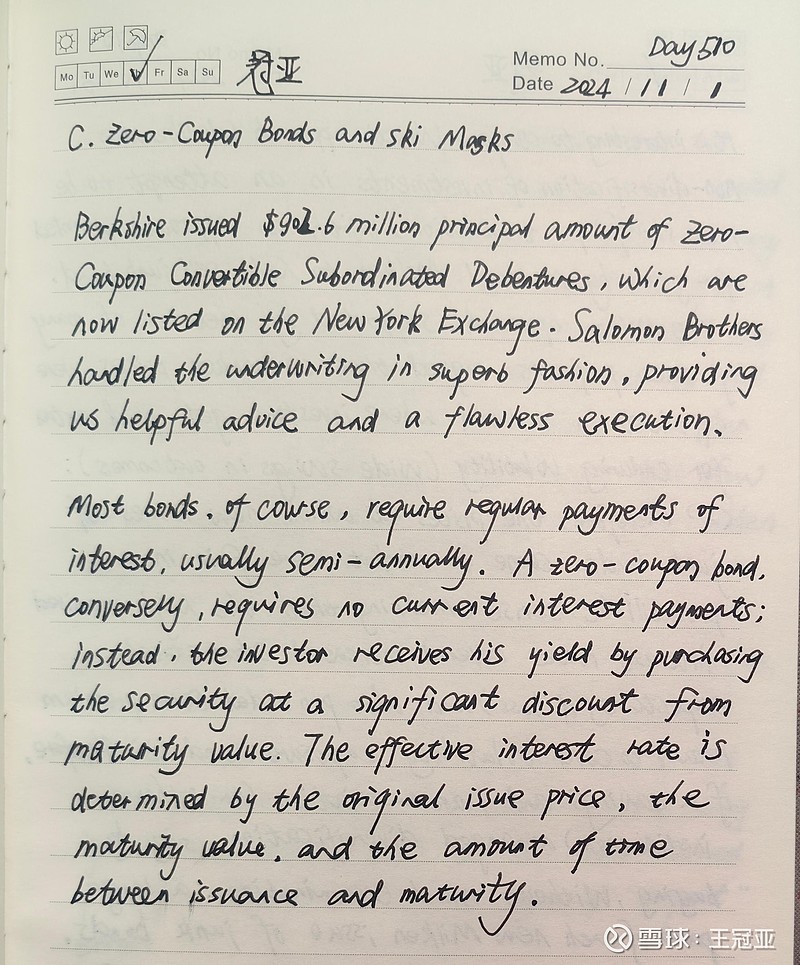 Mo Tu We Fr Sa Su
冠亚
Memo No. Day 510
Date 2024 / 11 / 1
C. Zero-Coupon Bonds and Ski Masks
Berkshire issued $902.6 million principal amount of Zero-
Coupon Convertible Subordinated Debentures, which are
now listed on the New York Exchange. Salomon Brothers
handled the underwriting in superb fashion, providing
us helpful advice and a flawless execution.
Most bonds, of course, require regular payments of
interest, usually semi-annually. A zero-coupon bond,
conversely, requires no current interest payments;
instead, the investor receives his yield by purchasing
the security at a significant discount from
maturity value. The effective interest rate is
determined by the original issue price, the
maturity value, and the amount of time
between issuance and maturity.
雪球:王冠亚